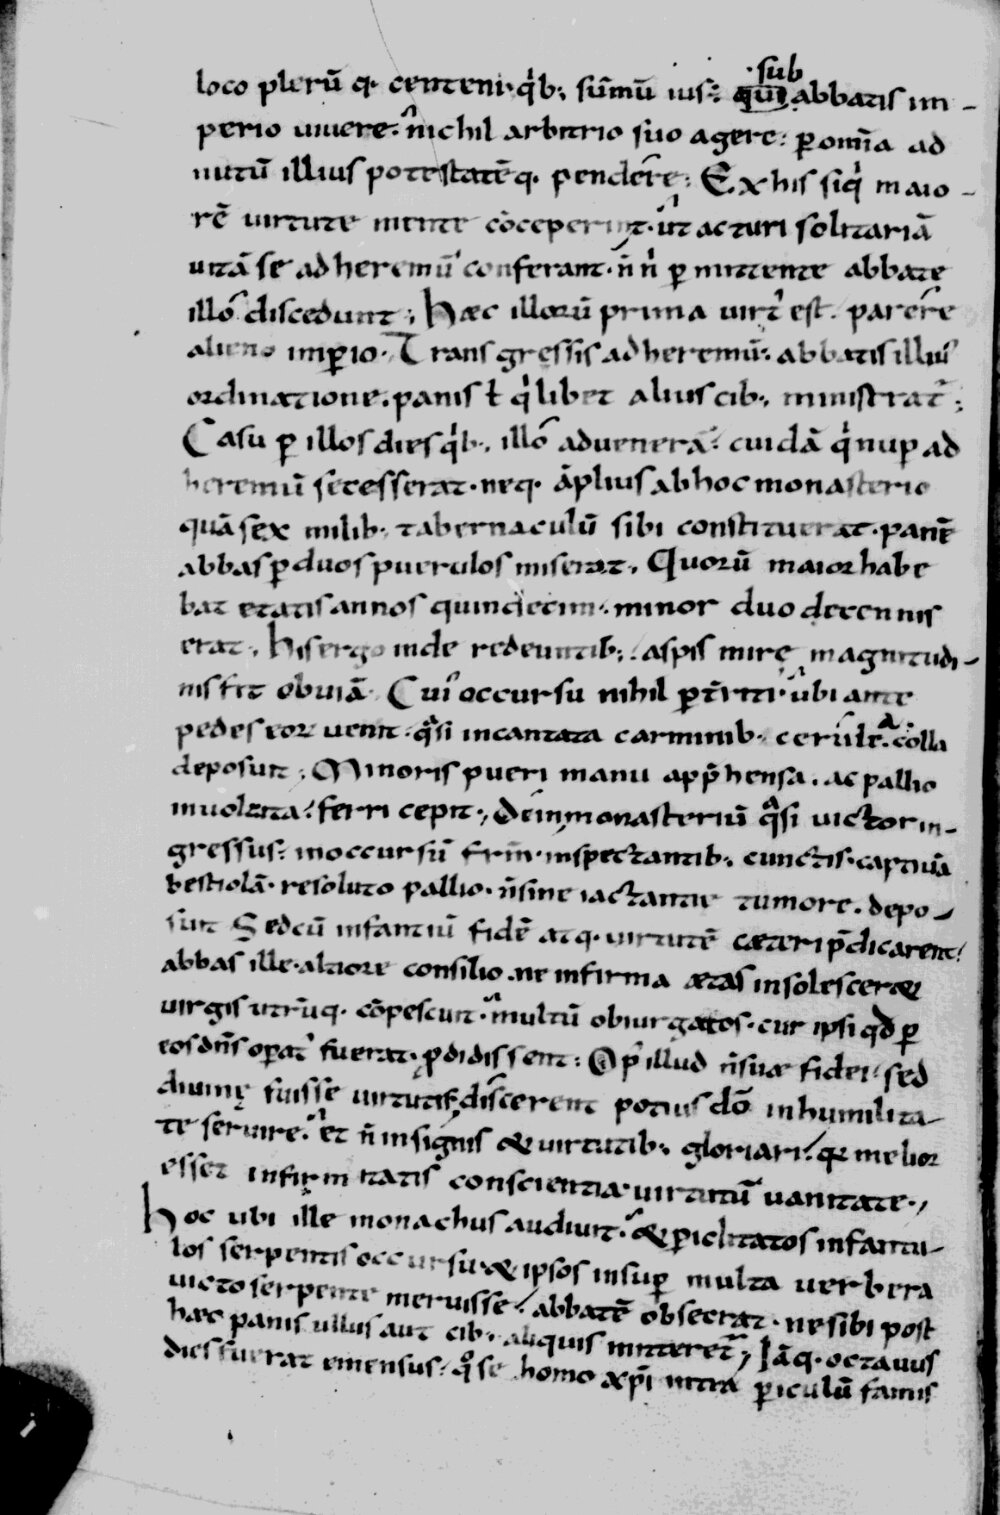 loco plerū q· centeni· qⁱb; sūmū ius·: qui ·sub abbatis im-
perio uiuere· nichil arbitrio suo agere: p̱ om̄ia ad
nutū illius potestatēq· pendere; Ex his siqⁱ maio-
rē uirtute mente cōceperint· ut acturi solitariā
uitā se ad heremū conferant· n̄ nⁱ p̱mittente abbate
illo discedunt; Haec illorū prima uirt᾿ est· parere
alieno imp̱io· Transgressis ad heremū· abbatis illiuˢ
ordinatione· panis ł qⁱlibet alius cib; ministrat᾿;
Casu p̱ illos dies qⁱb; illo aduenerā· cuidā qⁱ nup̱ ad
heremū secesserat· neq· āplius ab hoc monasterio
quā sex milib; tabernaculū sibi constituerat· panē
abbas p̱ duos puerulos miserat· Quorū maior habe
bat etatis annos quindecim· minor duodecennis
erat· His ergo inde redeuntib; aspis mirę magnitudi-
nis fit obuiā· Cuiˢ occursu nihil p̱t̄riti· ubi ante
pedes eoꝝ uenit· qᵃsi incantata carminib· cerulea colla
deposuit; Minoris pueri manu app̄hensa· ac pallio
inuoluta· ferri cepit; Dein monasteriū qᵃsi uictor in-
gressus· in occursū frm̄· inspectantib; cunctis· captiuā
bestiolā· resoluto pallio· n̄ sine iactantię tumore· depo-
suit Sed cū infantiū fidē atq· uirtutē caeteri p̄dicarent·
abbas ille· altiore consilio· ne infirma aetas insolesceret
uirgis utrūq· cōpescuit· multū obiurgatos· cur ipsi qd̄ p̱
eos dn̄s op̱at᾿ fuerat· ꝓdidissent: Op᾿ illud n̄ suae fidei· sed
diuinę fuisse uirtutis· discerent potius dō in humilita-
te seruire· et n̄ in signis & uirtutib; gloriari· quia melior
esset infirmitatis conscientia· uirtutū uanitate·,
Hoc ubi ille monachus audiuit· & p̱iclitatos infantu-
los serpentis occursu· & ipsos insup̱ multa uerbera
uicto serpente meruisse· abbatē obsecrat· ne sibi post
haec panis ullus aut cib· aliquis mitteret᾿; Iāq· octauus
dies fuerat emensus· qᵒ se homo xp̄i intra p̱iculū famis